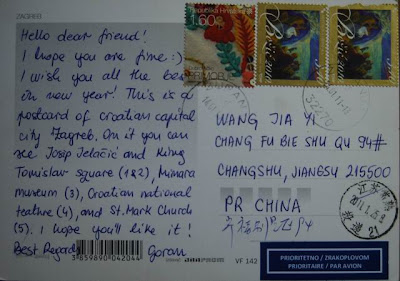 ZAGREB
Hello dear friend!
I hope you are fine :)
I wish you all the best
in new year! This is a
postcard of croatian capital
city Zagreb. On it you can
see Josip Jelačić and King
Tomislav square (1&2), Mimara
museum (3), Croatian national
teatre (4), and St. Mark Church
(5). I hope you'll like it!
Best Regards
Goran
3 859890 042044
VF 142
Republika Hrvatska
1.60
Božić
Božić
32270
WANG JIA YI
CHANG FU BIE SHU QU 94#
CHANGSHU, JIANGSU 215500
PR CHINA
94
江苏常熟
21
PRIORITETNO / ZRAKOPLOVOM
PRIORITAIRE / PAR AVION